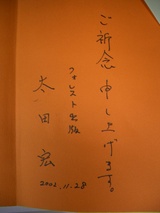 ご祈念申し上げます。
フォレスト出版
太田宏
2002.11.28